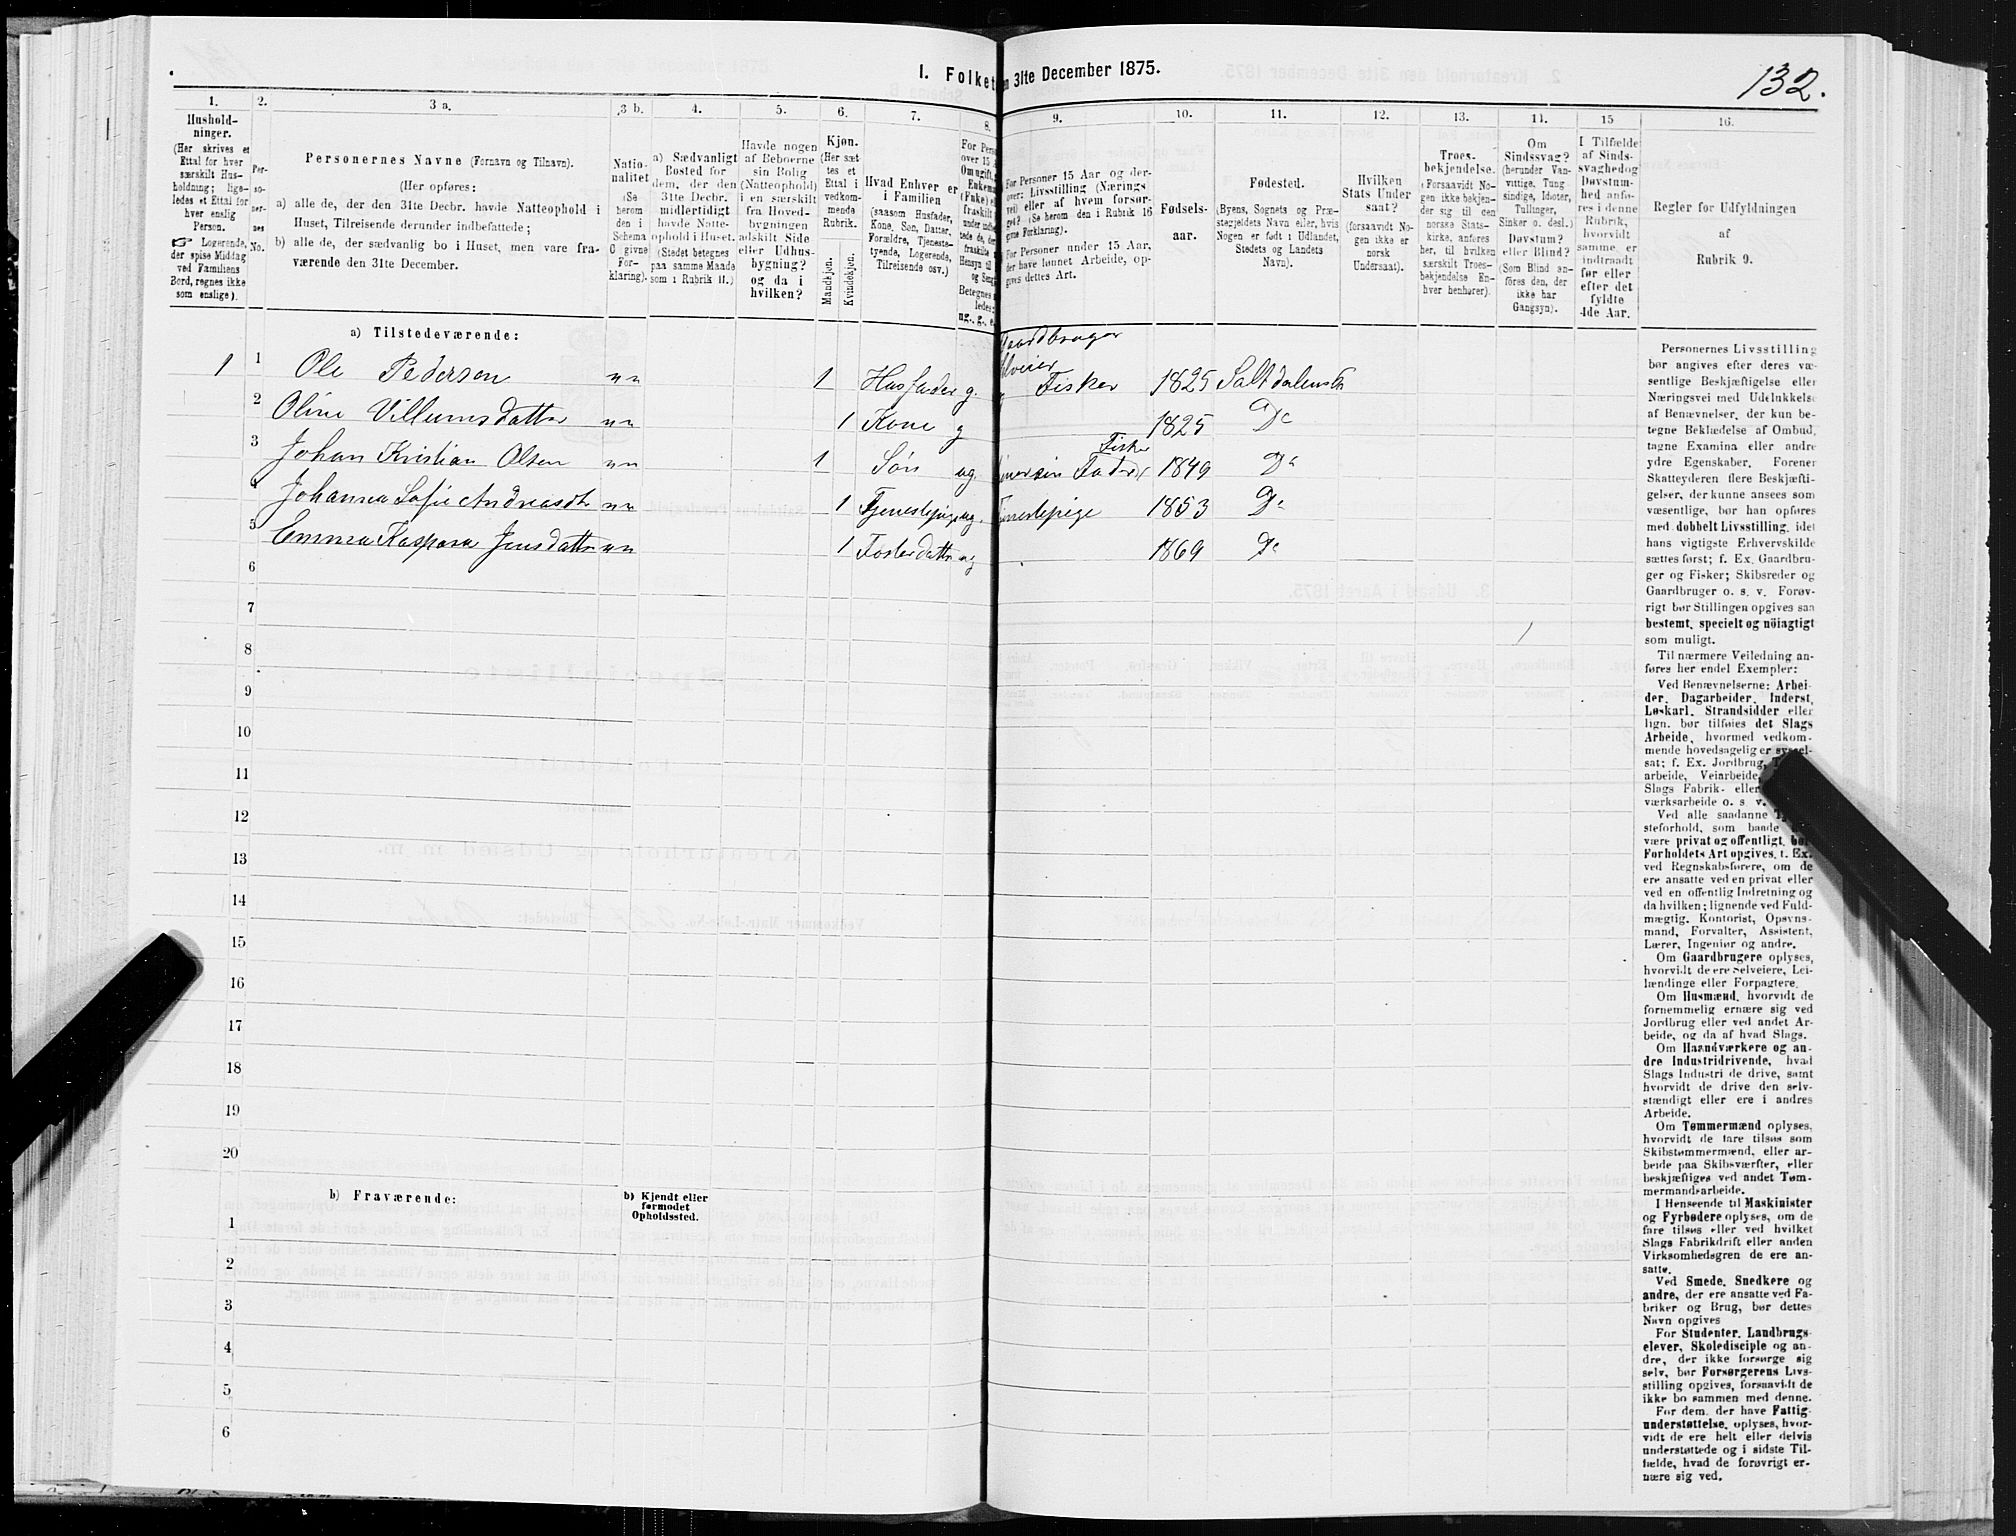 132.
I. Folket
n 31te December 1875.
1.
2.
3 a.
3 b.
4.
5.
6.
7.
8.
9.
10.
11.
12.
13.
14.
15
16.
Hushold-
ninger.
(Her skrives et
Ettal for hver
særskilt Hus-
holdning; lige-
ledes et Ettal for
hver enslig
Person.
☞ Logerende,
der spise Middag
ved Familiens
Bord, regnes ikke
som enslige).
Per-
so-
ner-
nes
No.
Personernes Navne (Fornavn og Tilnavn).
(Her opføres:
a) alle de, der den 31te Decbr. havde Natteophold i
Huset, Tilreisende derunder indbefattede;
b) alle de, der sædvanlig bo i Huset, men vare fra-
værende den 31te December.
Natio-
nalitet
(Se
herom
den i
Schema
O givne
For-
klaring).
a) Sædvanligt
Bosted for
dem, der den
31te Decbr.
midlertidigt
havde Natte-
ophold i Huset.
(Stedet betegnes
paa samme Maade
som i Rubrik 11.)
Havde nogen
af Beboerne
sin Bolig
(Natteophold)
i en særskilt
fra Hoved-
bygningen
adskilt Side
eller Udhus-
bygning?
og da i
hvilken?
Kjøn.
(Her sæt-
tes et
Ettal i
vedkom-
mende
Rubrik.
Mandkjøn.
Kvindekjøn.
Hvad Enhver er
i Familien
(saasom Husfader,
Kone, Søn, Datter,
Forældre, Tjeneste-
tyende, Logerende,
Tilreisende osv.)
For Perso
over 15
Om ugift,
Enkema
(Fnke) e
fraskilt
Betegnes
ledes:
ug., g., e
For Personer 15 Aar og der-
over: Livsstilling (Nærings-
vei) eller af hvem forsør-
get? (Se herom den i Rubrik 16
givne Forklaring).
For Personer under 15 Aar,
der have lønnet Arbeide, op-
gives dettes Art.
Fødsels-
aar.
Fødested.
(Byens, Sognets og Præ-
stegjeldets Navn eller, hvis
Nogen er født i Udlandet,
Stedets og Landets
Navn).
Hvilken
Stats Under
saat?
(forsaavidt No-
gen ikke er
norsk
Undersaat).
Troes-
bekjendelse.
(Forsaavidt No-
gen ikke bekjen-
der sig til den
norske Stats-
kirke, anføres
her, til hvilken
særskilt Troes-
bekjendelse En-
hver henhører).
Om
Sindssvag?
(herunder Van-
vittige, Tung
sindige, Idioter,
Tullinger,
Sinker o. desl.)
Døvstum?
eller Blind?
(Som Blind an-
føres den, der
ikke har
Gangsyn).
I Tilfælde
af Sinds-
svaghed og
Døvstum-
hed anfø-
res i denne
Rubrik,
hvorvidt
samme er
indtraadt
før eller
efter det
fyldte
4de Aar.
Regler for Udfyldningen
af
Rubrik 9.
a) Tilstedeværende:
1 1 Ole Pedersen nn 1 Husfader g. Gaardbruger Selveier Fisker 1825 Saltdalens
2 Oline Villumsdatter nn 1 Kone g 1825 Do
3 Johan Kristian Olsen nn 1 Søn ug. Fisker 1849 Do
4 Johanna Sofie Andreasdt nn 1 Tjenestepige ug. Tjenestepige 1853 Do
5 Emma Kaspara Jensdatter nn 1 Fosterdatter ug 1869 Do
6
7
8
9
10
11
12
13
14
15
16
17
18
19
20
b) Fraværende:
b) Kjendt eller
formodet
Opholdssted.
1
2
3
4
5
6
Personernes Livsstilling
bør angives efter deres væ-
sentlige Beskjæftigelse eller
Næringsvei med Udelukkelse
af Benævnelser, der kun be-
tegne Beklædelse af Ombud,
tagne Examina eller andre
ydre Egenskaber. Forener
Skatteyderen flere Beskjæfti-
gelser, der kunne ansees som
væsentlige, bør han opføres
med dobbelt Livsstilling, idet
hans vigtigste Erhvervskilde
sættes først; f. Ex. Gaardbru-
ger og Fisker; Skibsreder og
Gaardbruger o. s. v. Forøv-
rigt bør Stillingen opgives saa
bestemt, specielt og nöiagtigt
som muligt.
Til nærmere Veiledning an-
føres her endel Exempler:
Ved Benævnelserne: Arbei-
der, Dagarbeider, Inderst,
Løskarl, Strandsidder eller
lign. bør tilføies det Slags
Arbeide, hvormed vedkom-
mende hovedsagelig er syssel-
sat; f. Ex. Jordbrug,
arbeide, Veiarbeide,
Slags Fabrik- eller
værksarbeide o. s. v.
Ved alle saadanne
steforhold, som baade
være privat og offentligt, bør
Forholdets Art opgives, f. Ex.
ved Regnskabsførere, om de
ere ansatte ved en privat eller
ved en offentlig Indretning og
da hvilken; lignende ved Fuld-
mægtig, Kontorist, Opsyns-
mand, Forvalter, Assistent,
Lærer, Ingeniør og andre.
Om Gaardbrugere oplyses,
hvorvidt de ere Selveiere, Lei-
lændinge eller Forpagtere.
Om Husmænd, hvorvidt de
fornemmelig ernære sig ved
Jordbrug eller ved andet Ar-
beide, og da af hvad Slags.
Om Haandværkere og an-
dre Industridrivende, hvad
Slags Industri de drive, samt
hvorvidt de drive den selv-
stændigt eller ere i andres
Arbeide.
Om Tømmermænd oplyses,
hvorvidt de fare tilsøs som
Skibstømmermænd, eller ar-
beide paa Skibsværfter, eller
beskjæftiges ved andet Tøm-
mermandsarbeide.
I Henseende til Maskinister
og Fyrbødere oplyses, om de
fare tilsøs eller ved hvilket
Slags Fabrikdrift eller anden
Virksomhedsgren de ere an-
satte.
Ved Smede, Snedkere og
andre, der ere ansatte ved Fa-
briker og Brug, bør dettes
Navn opgives
For Studenter, Landbrugs-
elever, Skoledisciple og an-
dre, der ikke forsørge sig
selv, bør Forsørgerens Livs-
stilling opgives, forsaavidt de
ikke bo sammen med denne.
For dem, der have Fattig-
understøttelse, oplyses, hvor-
vidt de ere helt eller delvis
understøttede og i sidste Til-
fælde, hvad de forøvrigt er-
nære sig ved.